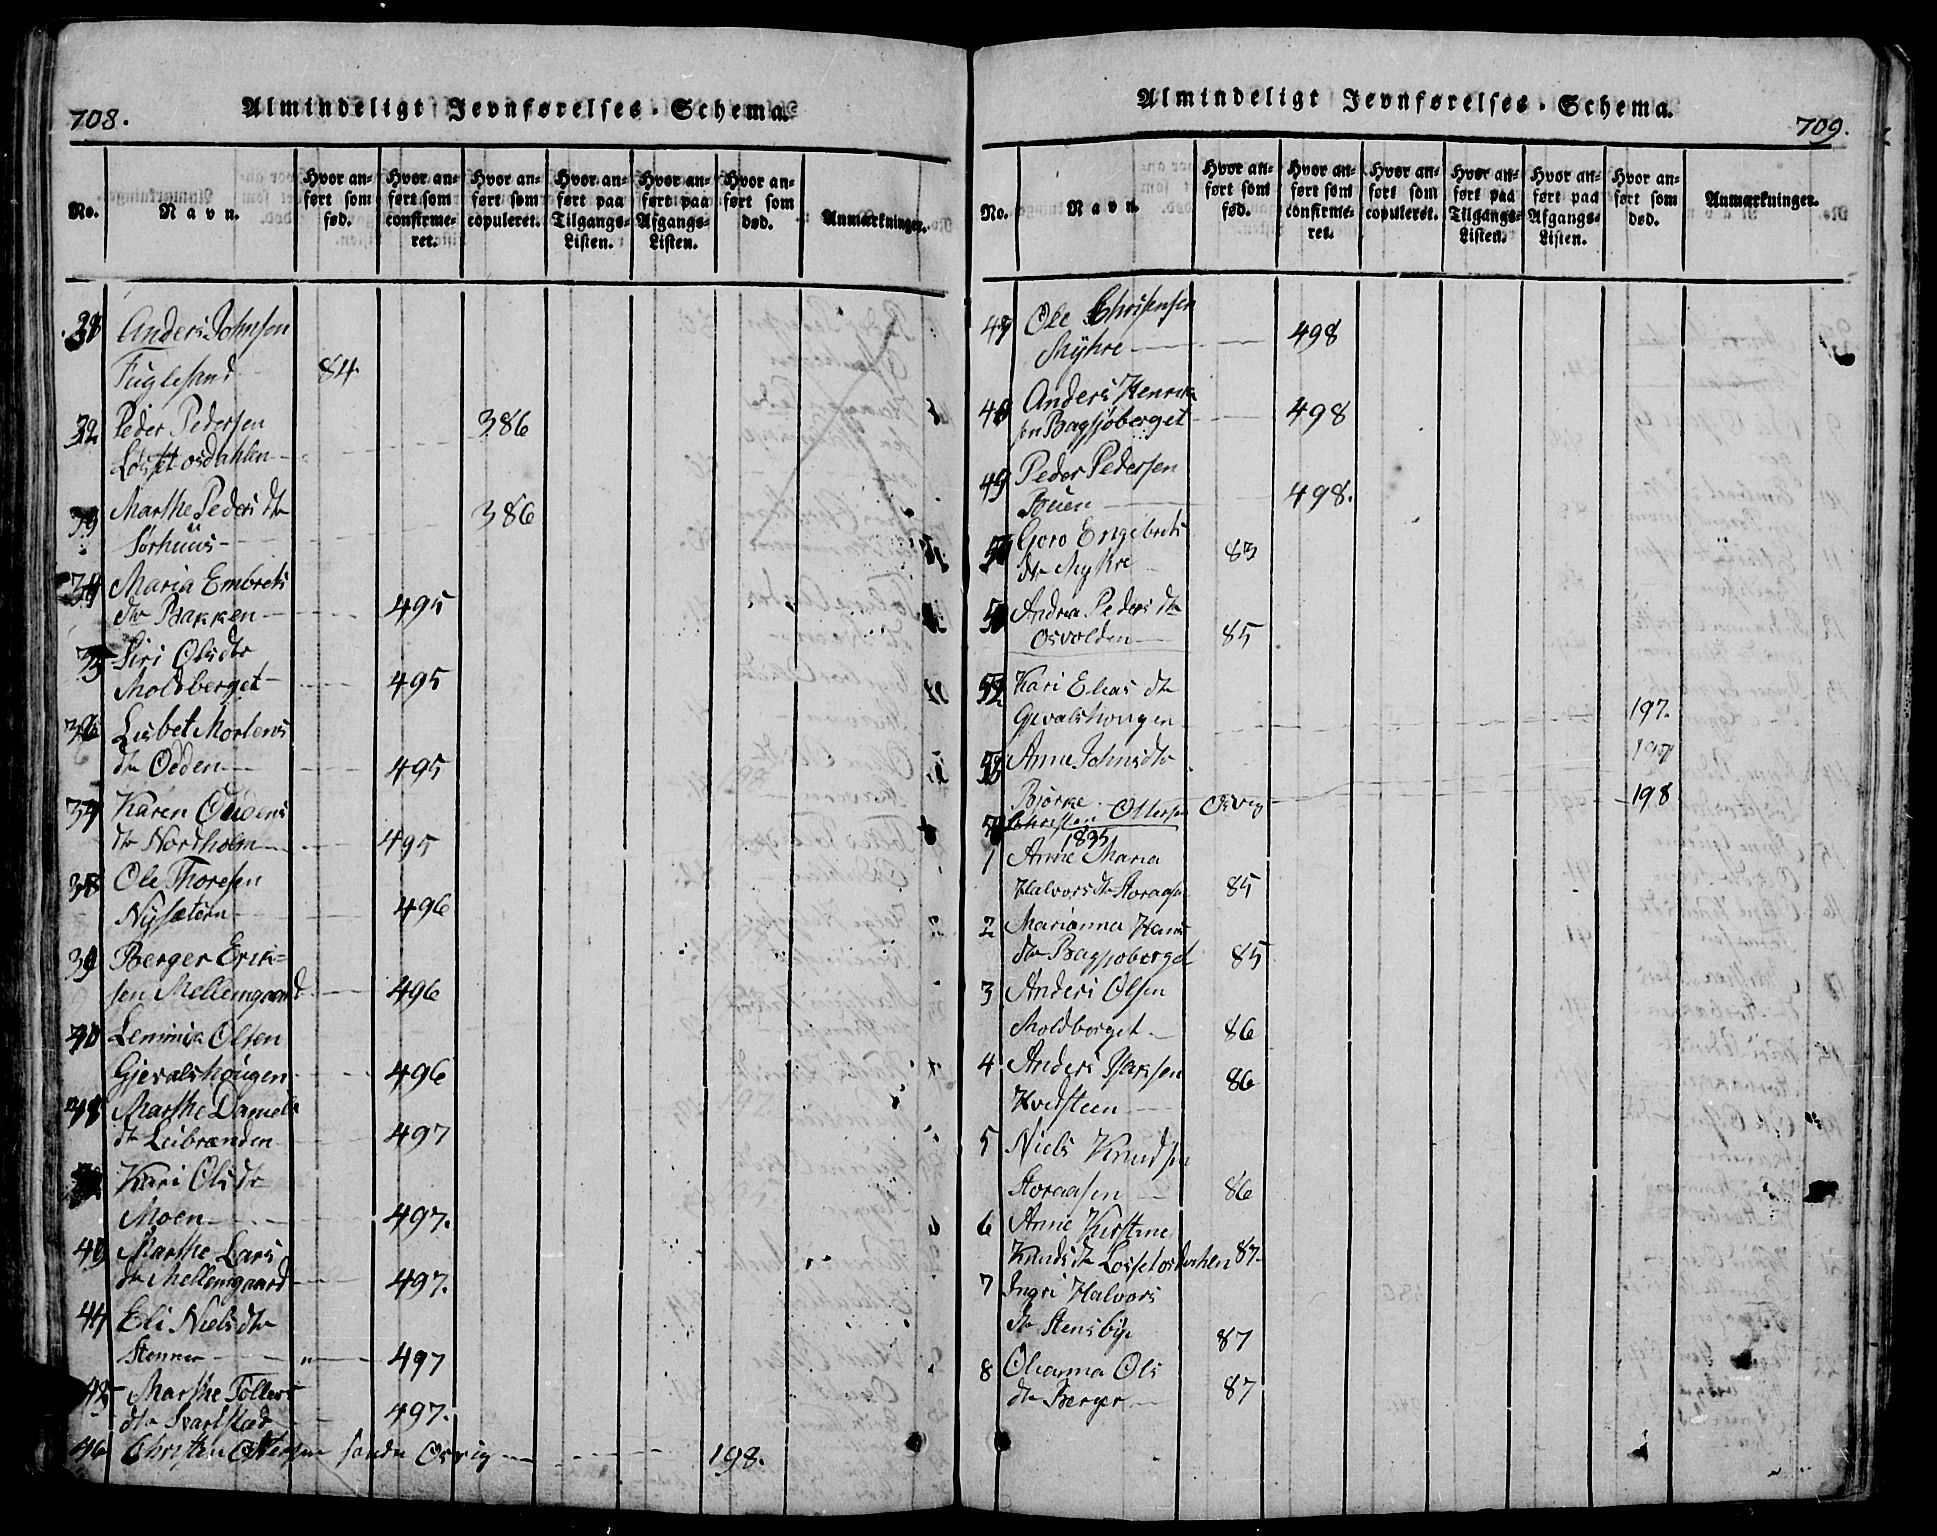 708.
Almindeligt Jevnførelses-Schema.
No.
Navn.
Hvor anført som fød.
Hvor anført som confirmeret.
Hvor anført som copuleret.
Hvor anført paa Tilgangs-Listen.
Hvor anført paa Afgangs-Listen.
Hvor anført som død.
Anmærkninger.
Anders Johnsen
Fuglesand 84
32 Peder Pedersen 386
Losset osdahlen
Marthe Peders dtr 386
Sørhuus
34 Maria Embrets
dtr Bakken 495
35 Siri Olsdtr
Moldberget 495
36 Lisbet Mortens
dtr Odden 495
37 Karen Oudens
dtr Nordholm 495
38 Ole Thoresen
Nysætern 496
39 Berger Erik=
sen Mellemgaard 496
40 Lemmik Olsen
Gjevalshougen 496
Marthe Daniels
dtr Leibrænden 497
Kari Olsdtr
Moen 497.
Marthe Lars
dtr Mellemgaard 497.
44 Eli Nielsdtr
Stenner " 497
Marthe Tollevs
dtr Svartstad 497.
46 Christen Ottersen Osvig 198.
709.
Almindeligt Jevnførelses-Schema.
No.
Navn.
Hvor anført som fød.
Hvor anført som confirmeret.
Hvor anført som copuleret.
Hvor anført paa Tilgangs-Listen.
Hvor anført paa Afgangs-Listen.
Hvor anført som død.
Anmærkninger.
Ole Christensen
Myhre 498
48 Anders Henrik
sen Bagsjøberget 498
49 Peder Pedersen
Bouen 498.
Goro Engebrets
dtr Myhre 83
Andrea Peders dtr
Osvolden 85
52 Kari Elias dtr
Gjevalshougen 197.
Anne Johnsdtr 197
Bjørke 198
Christen Ottersen Osvig
1835
1 Anne Maria
Halvors dtr Storaasen 85
2 Marianna Hans
dtr Bagsjøberget 85
3 Anders Olsen
Moldberget 86
4 Anders Isaksen 86
Kvedsteen
5 Niels Knudsen
Storaasen 86
6 Anne Kirstine
Knuds dtr Lossetosdahlen 87.
7 Ingri Halvors
dtr Stensbye 87
8 Oleanna Ols
dtr Berger 87